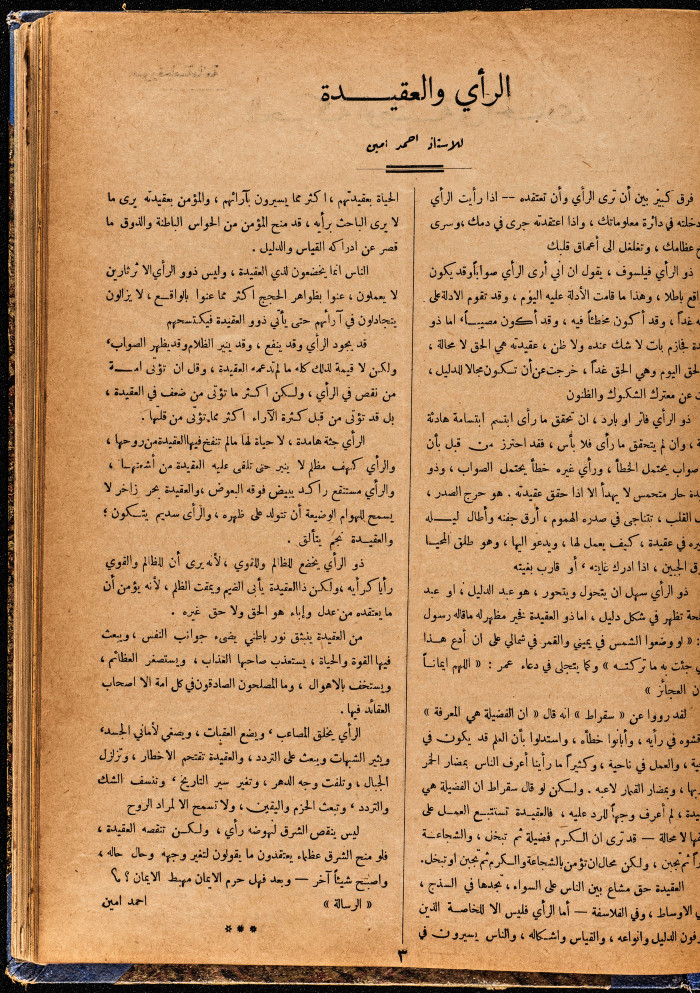 الرأي والعقيدة
للاستاذ احمد امين
فرق كبير بين أن ترى الرأي وأن تعتقده -- اذا رأيت الرأي
دخلته في دائرة معلوماتك ، واذا اعتقدته جرى في دمك ، وسرى
عظامك ، وتغلغل الى أعماق قلبك
ذو الرأي فيلسوف ، يقول ان اني أرى الرأي صواباً وقد يكون
باطلا ، وهذا ما قامت الأدلة عليه اليوم ، وقد تقوم الادلة على
غداً ، وقد أكون مخطئاً فيه ، وقد أكون مصيباً ، اما ذو
فجازم بات لا شك عنده ولا ظن ، عقيدته هي الحق لا محالة ،
الحق اليوم وهي الحق غداً ، خرجت عن أن تكون مجالا للدليل ،
عن معترك الشكوك والظنون
ذو الرأي فاتر او بارد ، ان تحقق ما رأى ابتسم ابتسامة هادئة
، وان لم يتحقق ما رأى فلا بأس ، فقد احترز من قبل بأن
صواب يحتمل الخطأ ، ورأي غيره خطأ يحتمل الصواب ، وذو
حار متحمس لا يهدأ الا اذا حقق عقيدته . هو حرج الصدر ،
القلب ، تتناجى في صدره الهموم ، أرق جفنه وأطال ليله
في عقيدة ، كيف يعمل لها ، ويدعو اليها ، وهو طلق المحيا
الجبين ، اذا ادرك غايته ، أو قارب بغيته
ذو الرأي سهل ان يتحول ويتحور ، هو عبد الدليل ، او عبد
تظهر في شكل دليل ، اما ذو العقيدة فخير مظهر له ما قاله رسول
: « لو وضعوا الشمس في يميني والقمر في شمالي على ان أدع هذا
جئت به ما تركته » وكما يتجلى في دعاء عمر : « اللهم ايماناً
العجائز »
لقد رووا عن « سقراط » انه قال « ان الفضيلة هي المعرفة »
في رأيه ، وأبانوا خطأه ، واستدلوا بأن العلم قد يكون في
، والعمل في ناحية ، وكثيراً ما رأينا أعرف الناس بمضار الخمر
، وبمضار القمار لاعبه . ولكن لو قال سقراط ان الفضيلة هي
، لم أعرف وجهاً للرد عليه ، فالعقيدة تستتبع العمل على
لا محالة — قد ترى ان الكرم فضيلة ثم تبخل ، والشجاعة
ثم تجبن ، ولكن محال ان تؤمن بالشجاعة والكرم ثم تجبن او تبخل .
العقيدة حق مشاع بين الناس على السواء ، تجدها في السذج ،
الاوساط ، وفي الفلاسفة — أما الرأي فليس الا للخاصة الذين
الدليل وانواعه ، والقياس واشكاله ، والناس يسيرون في
الحياة بعقيدتهم ، اكثر مما يسيرون بآرائهم ، والمؤمن بعقيدته يرى ما
لا يرى الباحث برأيه ، قد منح المؤمن من الحواس الباطنة والذوق ما
قصر عن ادراكه القياس والدليل .
الناس انما يخضعون لذي العقيدة ، وليس ذوو الرأي الا ثرثارين
لا يعملون ، عنوا بظواهر الحجج اكثر مما عنوا بالواقع ، لا يزالون
يتجادلون في آرائهم حتى يأتي ذوو العقيدة فيكتسحهم
قد يجود الرأي وقد ينفع ، وقد ينير الظلام وقد يظهر الصواب ،
ولكن لا قيمة لذلك كله ما لم تدعمه العقيدة ، وقل ان تؤتى امة
من نقص في الرأي ، ولكن اكثر ما تؤتى من ضعف في العقيدة ،
بل قد تؤتى من قبل كثرة الآراء اكثر مما تؤتى من قلتها .
الرأي جثة هامدة ، لا حياة لها مالم تنفخ فيها العقيدة من روحها ،
والرأي كهف مظلم لا ينير حتى تلقى عليه العقيدة من أشعتها ،
والرأي مستنقع راكد يبيض فوقه البعوض ، والعقيدة بحر زاخر لا
يسمح للهوام الوضيعة أن تتولد على ظهره ، والرأى سديم يتكون ؛
والعقيدة نجم يتألق .
ذو الرأي يخضع للظالم وللقوي ، لأنه يرى أن للظالم والقوي
رأياً كرأيه ، ولكن ذا العقيدة يأبى الضيم ويمقت الظلم ، لأنه يؤمن أن
ما يعتقده من عدل وإباء هو الحق ولا حق غيره .
من العقيدة ينبثق نور باطني يضىء جوانب النفس ، ويبعث
فيها القوة والحياة ، يستعذب صاحبها العذاب ، ويستصغر العظائم ،
ويستخف بالاهوال ، وما المصلحون الصادقون في كل امة الا اصحاب
العقائد فيها .
الرأي يخلق المصاعب ، ويضع العقبات ، ويصغي لأماني الجسد ،
ويثير الشبهات ويبعث على التردد ، والعقيدة تقتحم الاخطار ، وتزلزل
الجبال ، وتلفت وجه الدهر ، وتغير سير التاريخ ، وتنسف الشك
والتردد ، وتبعث الحزم واليقين ، ولا تسمح الا لمراد الروح
ليس ينقص الشرق لنهوضه رأي ، ولكن تنقصه العقيدة ،
فلو منح الشرق عظماء يعتقدون ما يقولون لتغير وجهه وحال حاله ،
واصبح شيئاً آخر — وبعد فهل حرم الايمان مهبط الايمان ؟ ؟
« الرسالة » احمد امين
***
٣